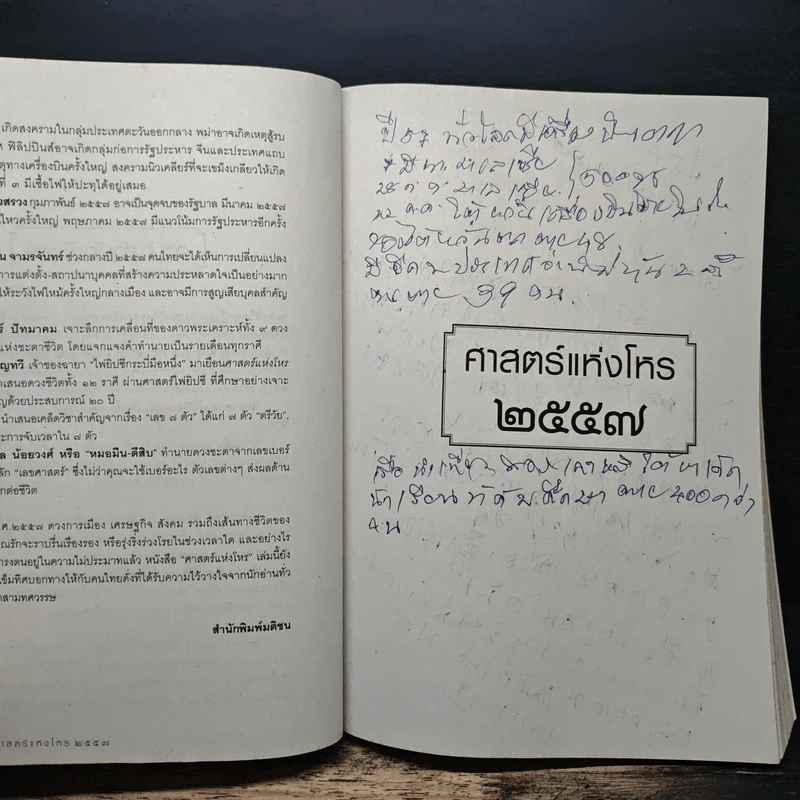 เกิดสงครามในกลุ่มประเทศตะวันออกกลาง พม่าอาจเกิดเหตุสู้รบ
ฟิลิปปินส์อาจเกิดกลุ่มก่อการรัฐประหาร จีนและประเทศแถบ
ตุทางเครื่องบินครั้งใหญ่ สงครามนิวเคลียร์ที่จะเขม็งเกลียวให้เกิด
ที่ ๓ มีเชื้อไฟให้ปะทุได้อยู่เสมอ
สวรวง กุมภาพันธ์ ๒๕๕๗ อาจเป็นจุดจบของรัฐบาล มีนาคม ๒๕๕๗
ไหวครั้งใหญ่ พฤษภาคม ๒๕๕๗ มีแนวโน้มการรัฐประหารอีกครั้ง
น จามรจันทร์ ช่วงกลางปี ๒๕๕๗ คนไทยจะได้เห็นการเปลี่ยนแปลง
การแต่งตั้ง-สถาปนาบุคคลที่สร้างความประหลาดใจเป็นอย่างมาก
ให้ระวังไฟไหม้ครั้งใหญ่กลางเมือง และอาจมีการสูญเสียบุคคลสำคัญ
ร์ ปัทมาคม เจาะลึกการเคลื่อนที่ของดาวพระเคราะห์ทั้ง ๙ ดวง
แห่งชะตาชีวิต โดยแจกแจงคำทำนายเป็นรายเดือนทุกราศี
ญทวี เจ้าของฉายา "ไพ่ยิปซีกระบี่มือหนึ่ง" มาเยือนศาสตร์แห่งโหร
นำเสนอดวงชีวิตทั้ง ๑๒ ราศี ผ่านศาสตร์ไพ่ยิปซี ที่ศึกษาอย่างเจาะ
ญด้วยประสบการณ์ ๒๐ ปี
นำเสนอเคล็ดวิชาสำคัญจากเรื่อง "เลข ๗ ตัว" ได้แก่ ๗ ตัว "ตรีวัย",
ะการจับเวลาใน ๗ ตัว
ล น้อยวงศ์ หรือ "หมอมีน-ตีสิบ" ทำนายดวงชะตาจากเลขเบอร์
ลัก "เลขศาสตร์" ซึ่งไม่ว่าคุณจะใช้เบอร์อะไร ตัวเลขต่างๆ ส่งผลด้าน
กต่อชีวิต
ศ.๒๕๕๗ ดวงการเมือง เศรษฐกิจ สังคม รวมถึงเส้นทางชีวิตของ
ณรักจะราบรื่นเรืองรอง หรือรุ่งริ่งร่วงโรยในช่วงเวลาใด และอย่างไร
ารงตนอยู่ในความไม่ประมาทแล้ว หนังสือ "ศาสตร์แห่งโหร" เล่มนี้ยัง
ข็มทิศบอกทางให้กับคนไทยดั่งที่ได้รับความไว้วางใจจากนักอ่านทั่ว
ดสามทศวรรษ
สำนักพิมพ์มติชน
าสตร์แห่งโหร ๒๕๕๗
ปี ๕๗ ทั่วโลกมีเครื่องบินตก
มาเลเซีย
ของไต้หวันตก ตาย
ตาย คน
ศาสตร์แห่งโหร
๒๕๕๗
นักเรียน ตาย ๓๐๐ กว่า
คน